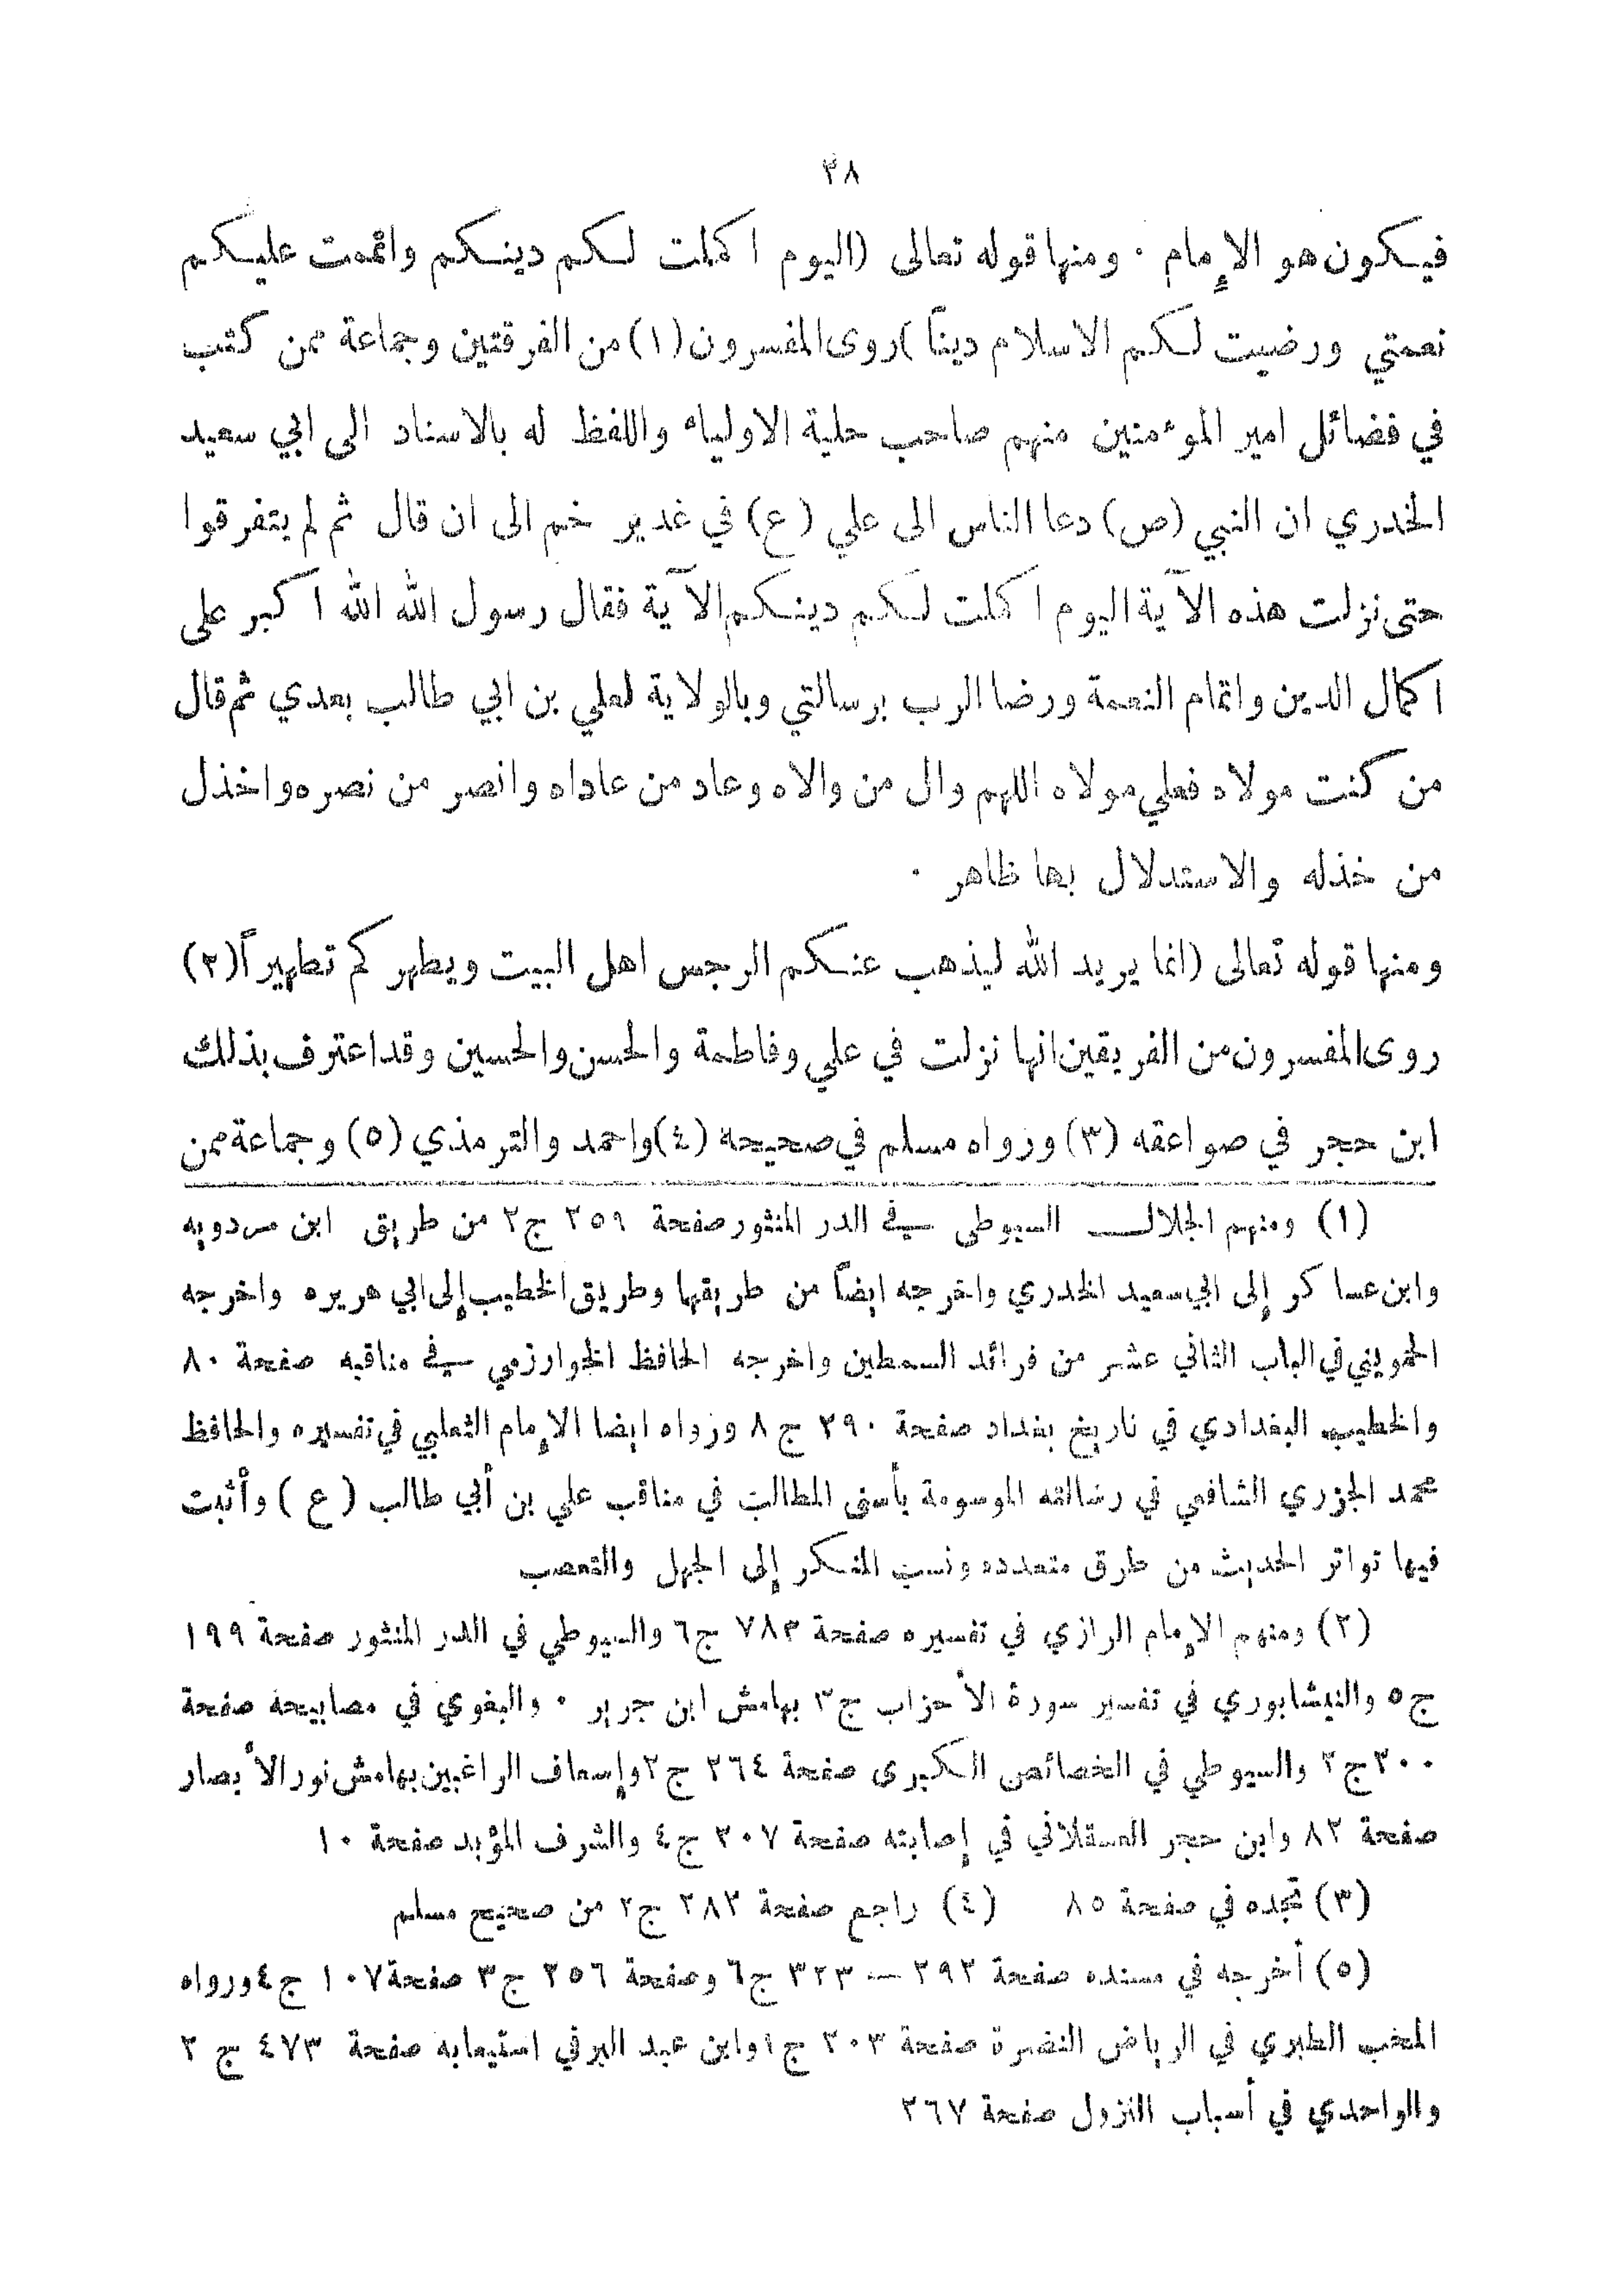 ٣٨
فيكون هو الإمام . ومنها قوله تعالى (اليوم اكملت لكم دينكم واتممت عليكم
نعمتي ورضيت لكم الاسلام ديناً) روى المفسرون (١) من الفرقتين وجماعة ممن كتب
في فضائل امير الموءمنين منهم صاحب حلية الاولياء واللفظ له بالاسناد الى ابي سعيد
الخدري ان النبي (ص) دعا الناس الى علي (ع) في غدير خم الى ان قال ثم لم يتفرقوا
حتى نزلت هذه الآية اليوم اكملت لكم دينكم الآية فقال رسول الله الله اكبر على
اكمال الدين واتمام النعمة ورضا الرب برسالتي وبالولاية لعلي بن ابي طالب بعدي ثم قال
من كنت مولاه فعلي مولاه اللهم وال من والاه وعاد من عاداه وانصر من نصره واخذل
من خذله والاستدلال بها ظاهر .
ومنها قوله تعالى (انما يريد الله ليذهب عنكم الرجس اهل البيت ويطهركم تطهيراً (٢)
روى المفسرون من الفريقين انها نزلت في علي وفاطمة والحسن والحسين وقد اعترف بذلك
ابن حجر في صواعقه (٣) ورواه مسلم في صحيحه (٤) واحمد والترمذي (٥) وجماعة ممن
(١) ومنهم الجلال السيوطي في الدر المنثور صفحة ٢٥٩ ج٢ من طريق ابن مردويه
وابن عساكر إلى ابي سعيد الخدري واخرجه ايضاً من طريقها وطريق الخطيب إلى ابي هريره واخرجه
الحمويني في الباب الثاني عشر من فرائد السمطين واخرجه الحافظ الخوارزمي في مناقبه صفحة ٨٠
والخطيب البغدادي في تاريخ بغداد صفحة ٢٩٠ ج ٨ ورواه ايضا الإمام الثعلبي في تفسيره والحافظ
محمد الجزري الشافعي في رسالته الموسومة بأسنى المطالب في مناقب علي بن أبي طالب (ع) وأثبت
فيها تواتر الحديث من طرق متعدده ونسب المنكر إلى الجهل والتعصب
(٢) ومنهم الإمام الرازي في تفسيره صفحة ٧٨٣ ج٦ والسيوطي في الدر المنثور صفحة ١٩٩
ج٥ والنيشابوري في تفسير سورة الأحزاب ج٣ بهامش ابن جرير . والبغوي في مصابيحه صفحة
٢٠٠ ج٢ والسيوطي في الخصائص الكبرى صفحة ٢٦٤ ج٢ وإسعاف الراغبين بهامش نور الأبصار
صفحة ٨٢ وابن حجر العسقلاني في إصابته صفحة ٢٠٧ ج٤ والشرف المؤبد صفحة ١٠
(٣) تجده في صفحة ٨٥ (٤) راجع صفحة ٢٨٣ ج٢ من صحيح مسلم
(٥) أخرجه في مسنده صفحة ٢٩٢ — ٣٢٣ ج٦ وصفحة ٢٥٦ ج٣ صفحة ١٠٧ ج٤ ورواه
المحب الطبري في الرياض النضرة صفحة ٢٠٣ ج١ وابن عبد البر في استيعابه صفحة ٤٧٣ ج ٢
والواحدي في أسباب النزول صفحة ٢٦٧